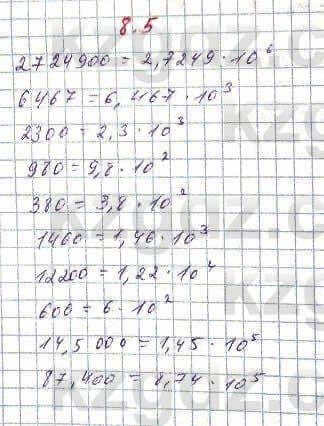 8.5
2724900 = 2,7249 · 10⁶
6467 = 6,467 · 10³
2300 = 2.3 · 10³
980 = 9,8 · 10²
380 = 3,8 · 10²
1460 = 1,46 · 10³
12200 = 1,22 · 10⁴
600 = 6 · 10²
14,5 000 = 1,45 · 10⁵
87,400 = 8,74 · 10⁵